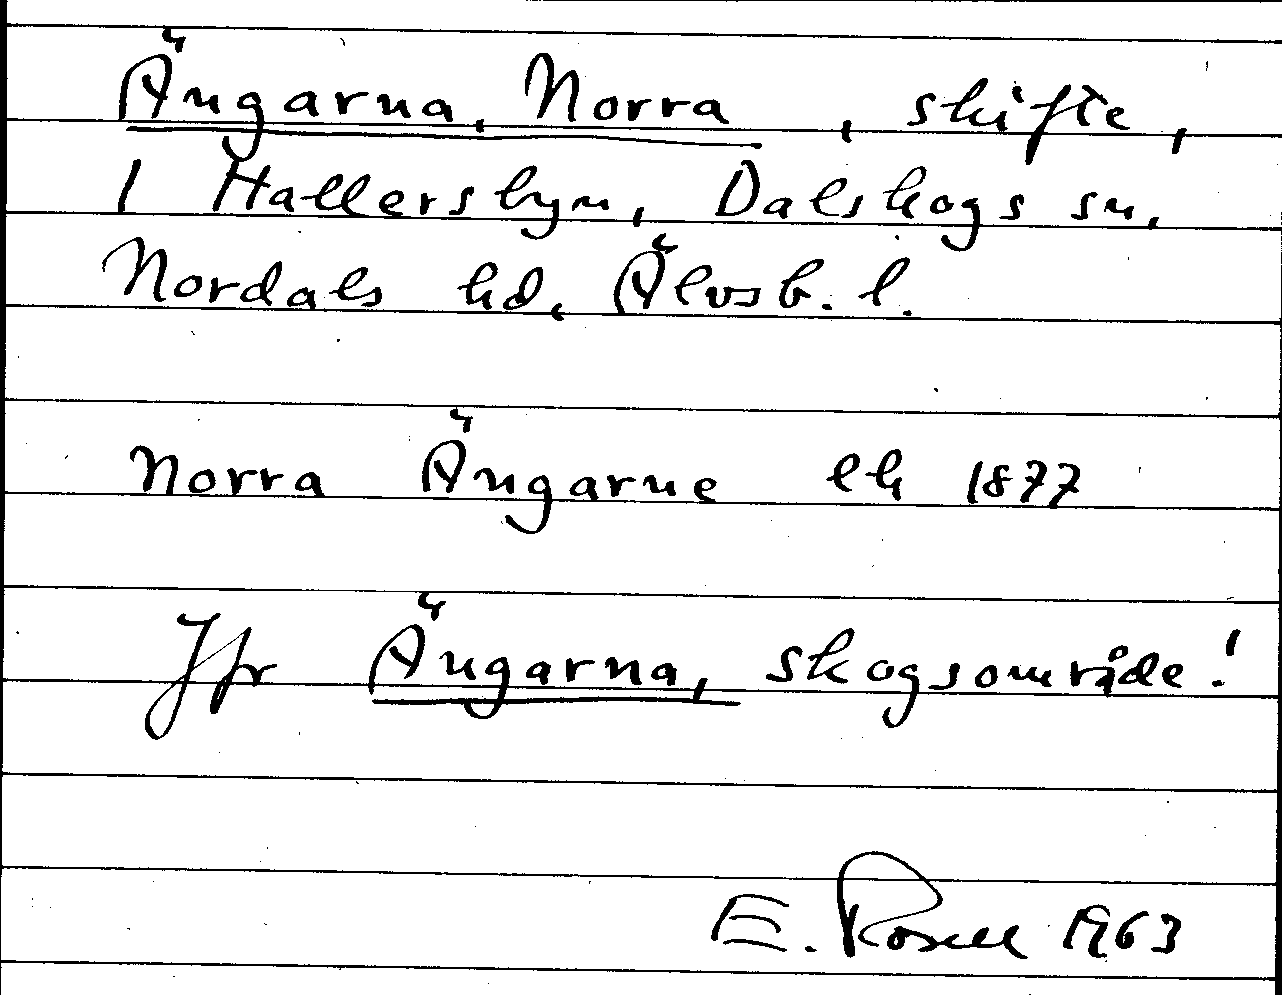 Ängarna, Norra, skifte,
1 Hallersbyn, Dalskogs sn.
Nordals hd, Älvsb. l.
Norra Ängarne ek 1877
Jfr Ängarna, skogsområde!
E. Rosell 1963